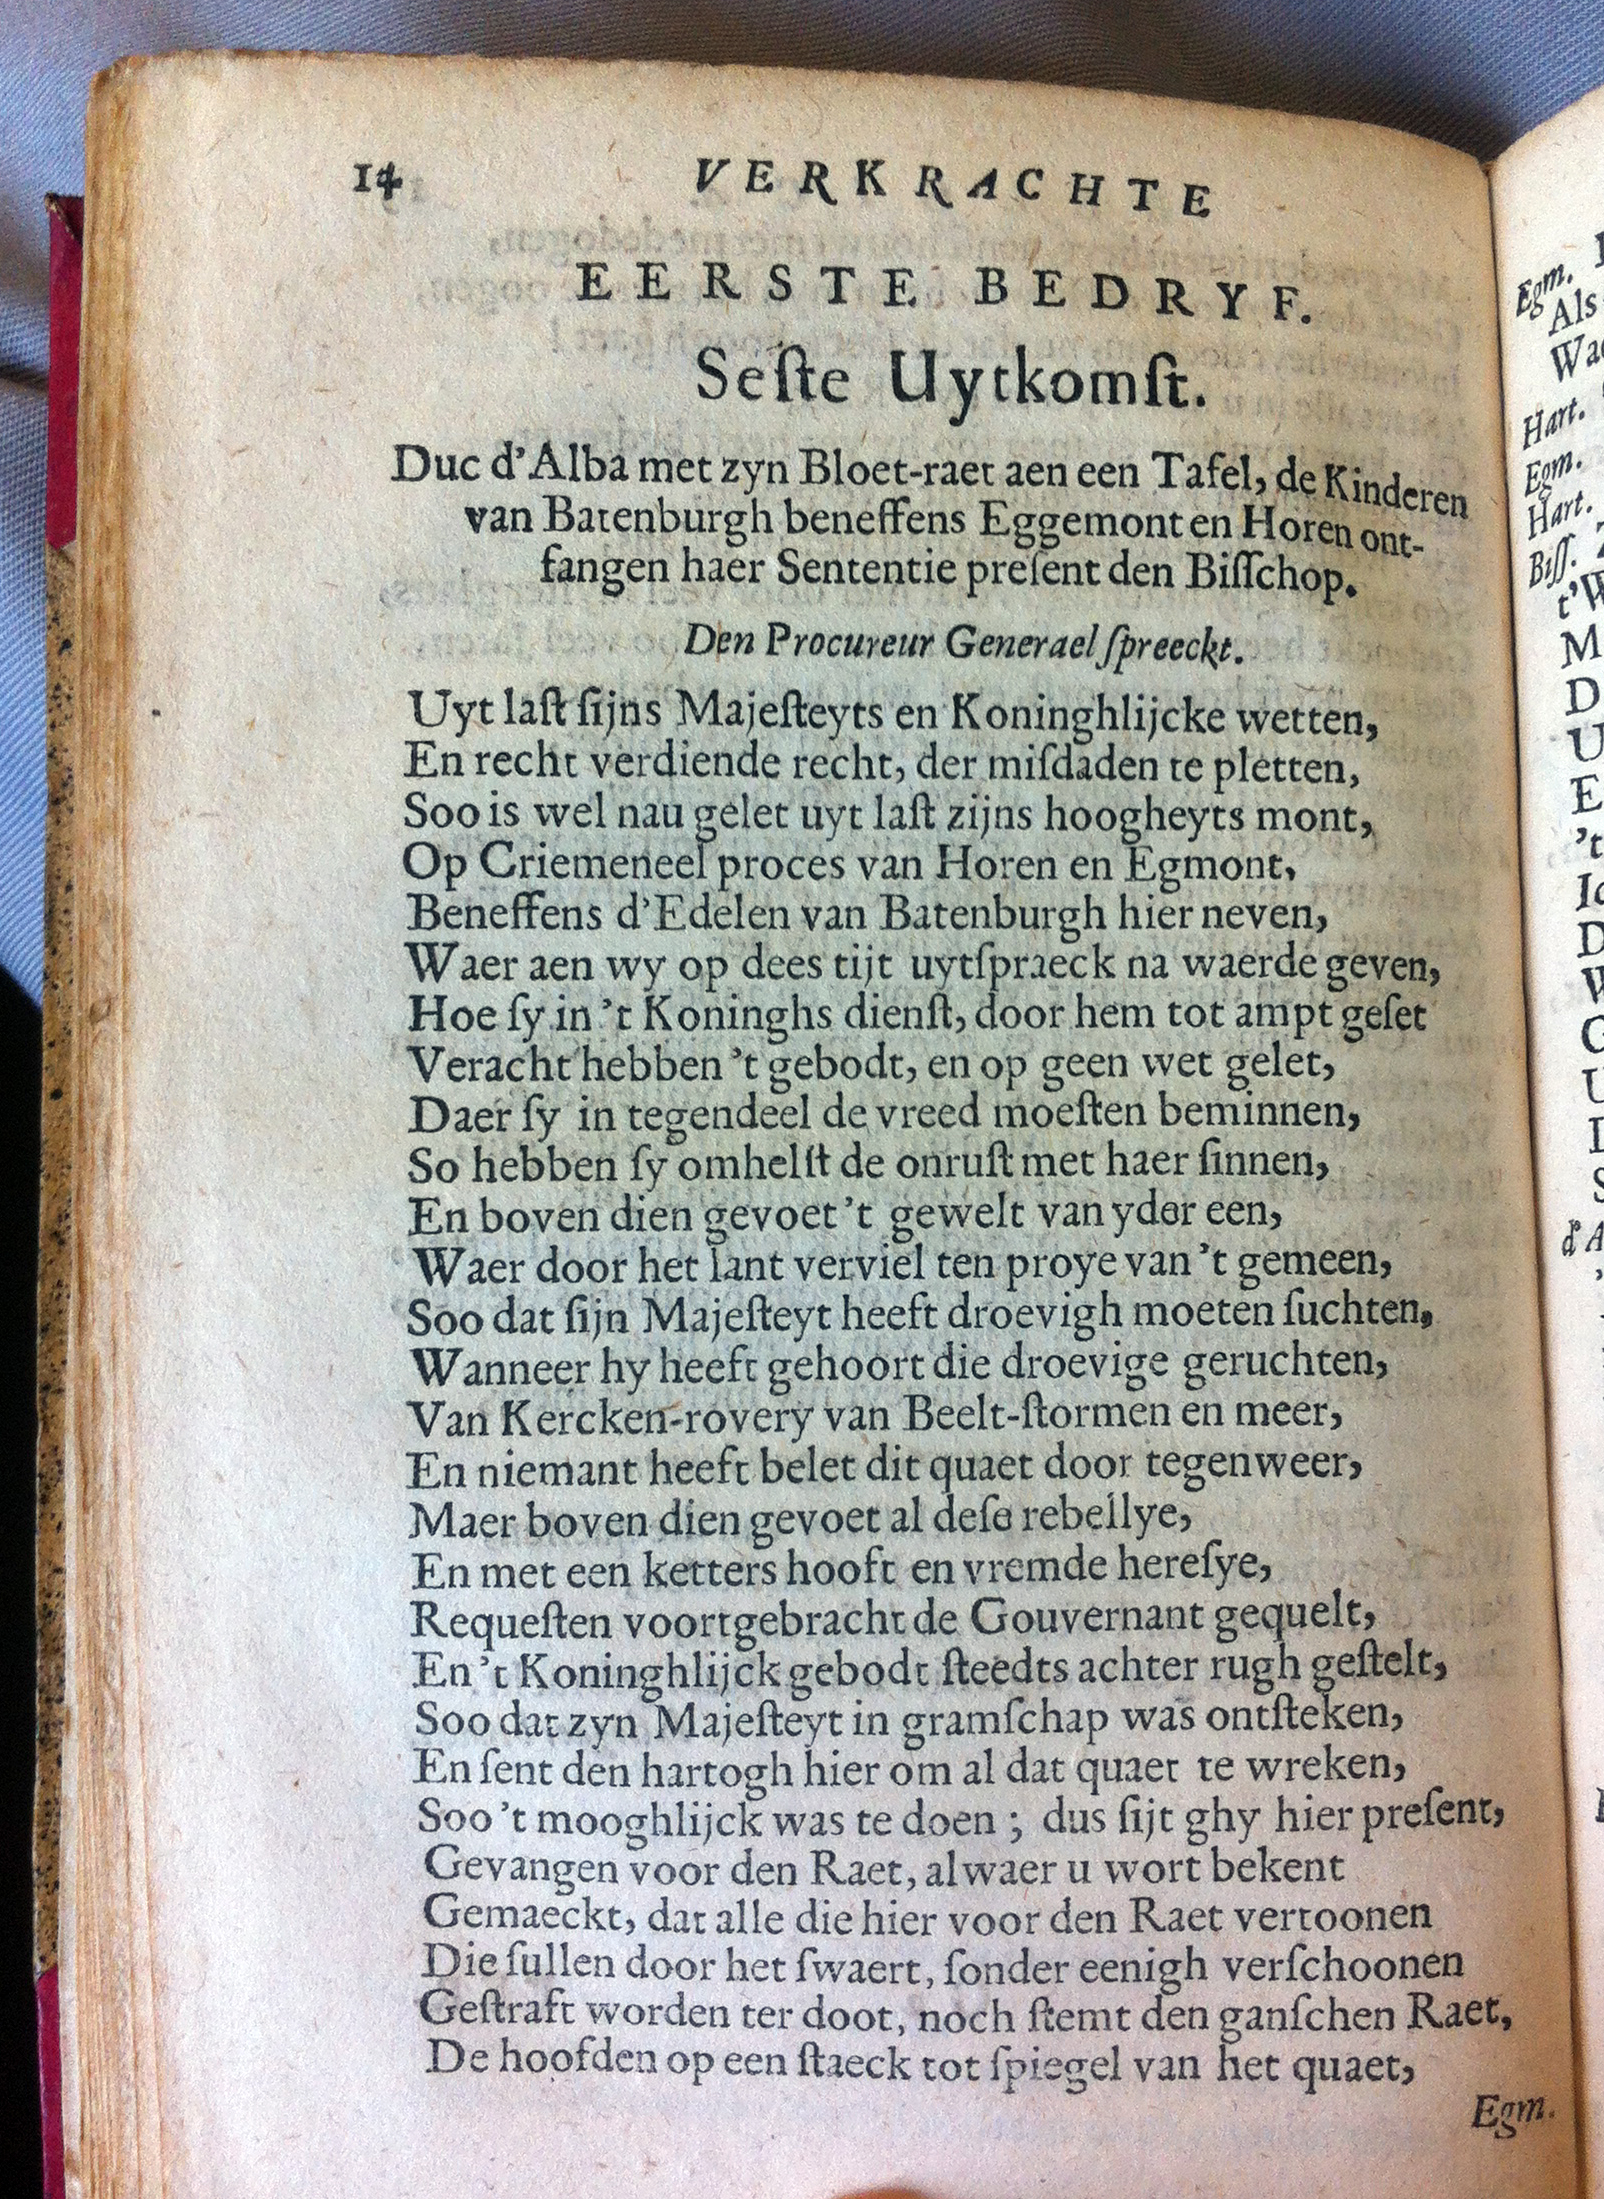 14 VERKRACHTE
EERSTE BEDRYF.
Seſte Uytkomſt.
Duc d'Alba met zyn Bloet-raet aen een Tafel, de Kinderen
van Batenburgh beneffens Eggemont en Horen ont-
fangen haer Sententie preſent den Biſſchop.
Den Procureur Generael ſpreeckt.
Uyt laſt ſijns Majeſteyts en Koninghlijcke wetten,
En recht verdiende recht, der miſdaden te pletten,
Soo is wel nau gelet uyt laſt zijns hoogheyts mont,
Op Criemeneel proces van Horen en Egmont,
Beneffens d'Edelen van Batenburgh hier neven,
Waer aen wy op dees tijt uytſpraeck na waerde geven,
Hoe ſy in 't Koninghs dienſt, door hem tot ampt geſet
Veracht hebben 't gebodt, en op geen wet gelet,
Daer ſy in tegendeel de vreed moeſten beminnen,
So hebben ſy omhelſt de onruſt met haer ſinnen,
En boven dien gevoet 't gewelt van yder een,
Waer door het lant verviel ten proye van 't gemeen,
Soo dat ſijn Majeſteyt heeft droevigh moeten ſuchten,
Wanneer hy heeft gehoort die droevige geruchten,
Van Kercken-rovery van Beelt-ſtormen en meer,
En niemant heeft belet dit quaet door tegenweer,
Maer boven dien gevoet al deſe rebellye,
En met een ketters hooft en vremde hereſye,
Requeſten voortgebracht de Gouvernant gequelt,
En 't Koninghlijck gebodt ſteedts achter rugh geſtelt,
Soo dat zyn Majeſteyt in gramſchap was ontſteken,
En ſent den hartogh hier om al dat quaet te wreken,
Soo 't mooghlijck was te doen ; dus ſijt ghy hier preſent,
Gevangen voor den Raet, alwaer u wort bekent
Gemaeckt, dat alle die hier voor den Raet vertoonen
Die ſullen door het ſwaert, ſonder eenigh verſchoonen
Geſtraft worden ter doot, noch ſtemt den ganſchen Raet,
De hoofden op een ſtaeck tot ſpiegel van het quaet,
Egm.
Egm.
Als
Hart.
Egm.
Hart.
Biſſ.